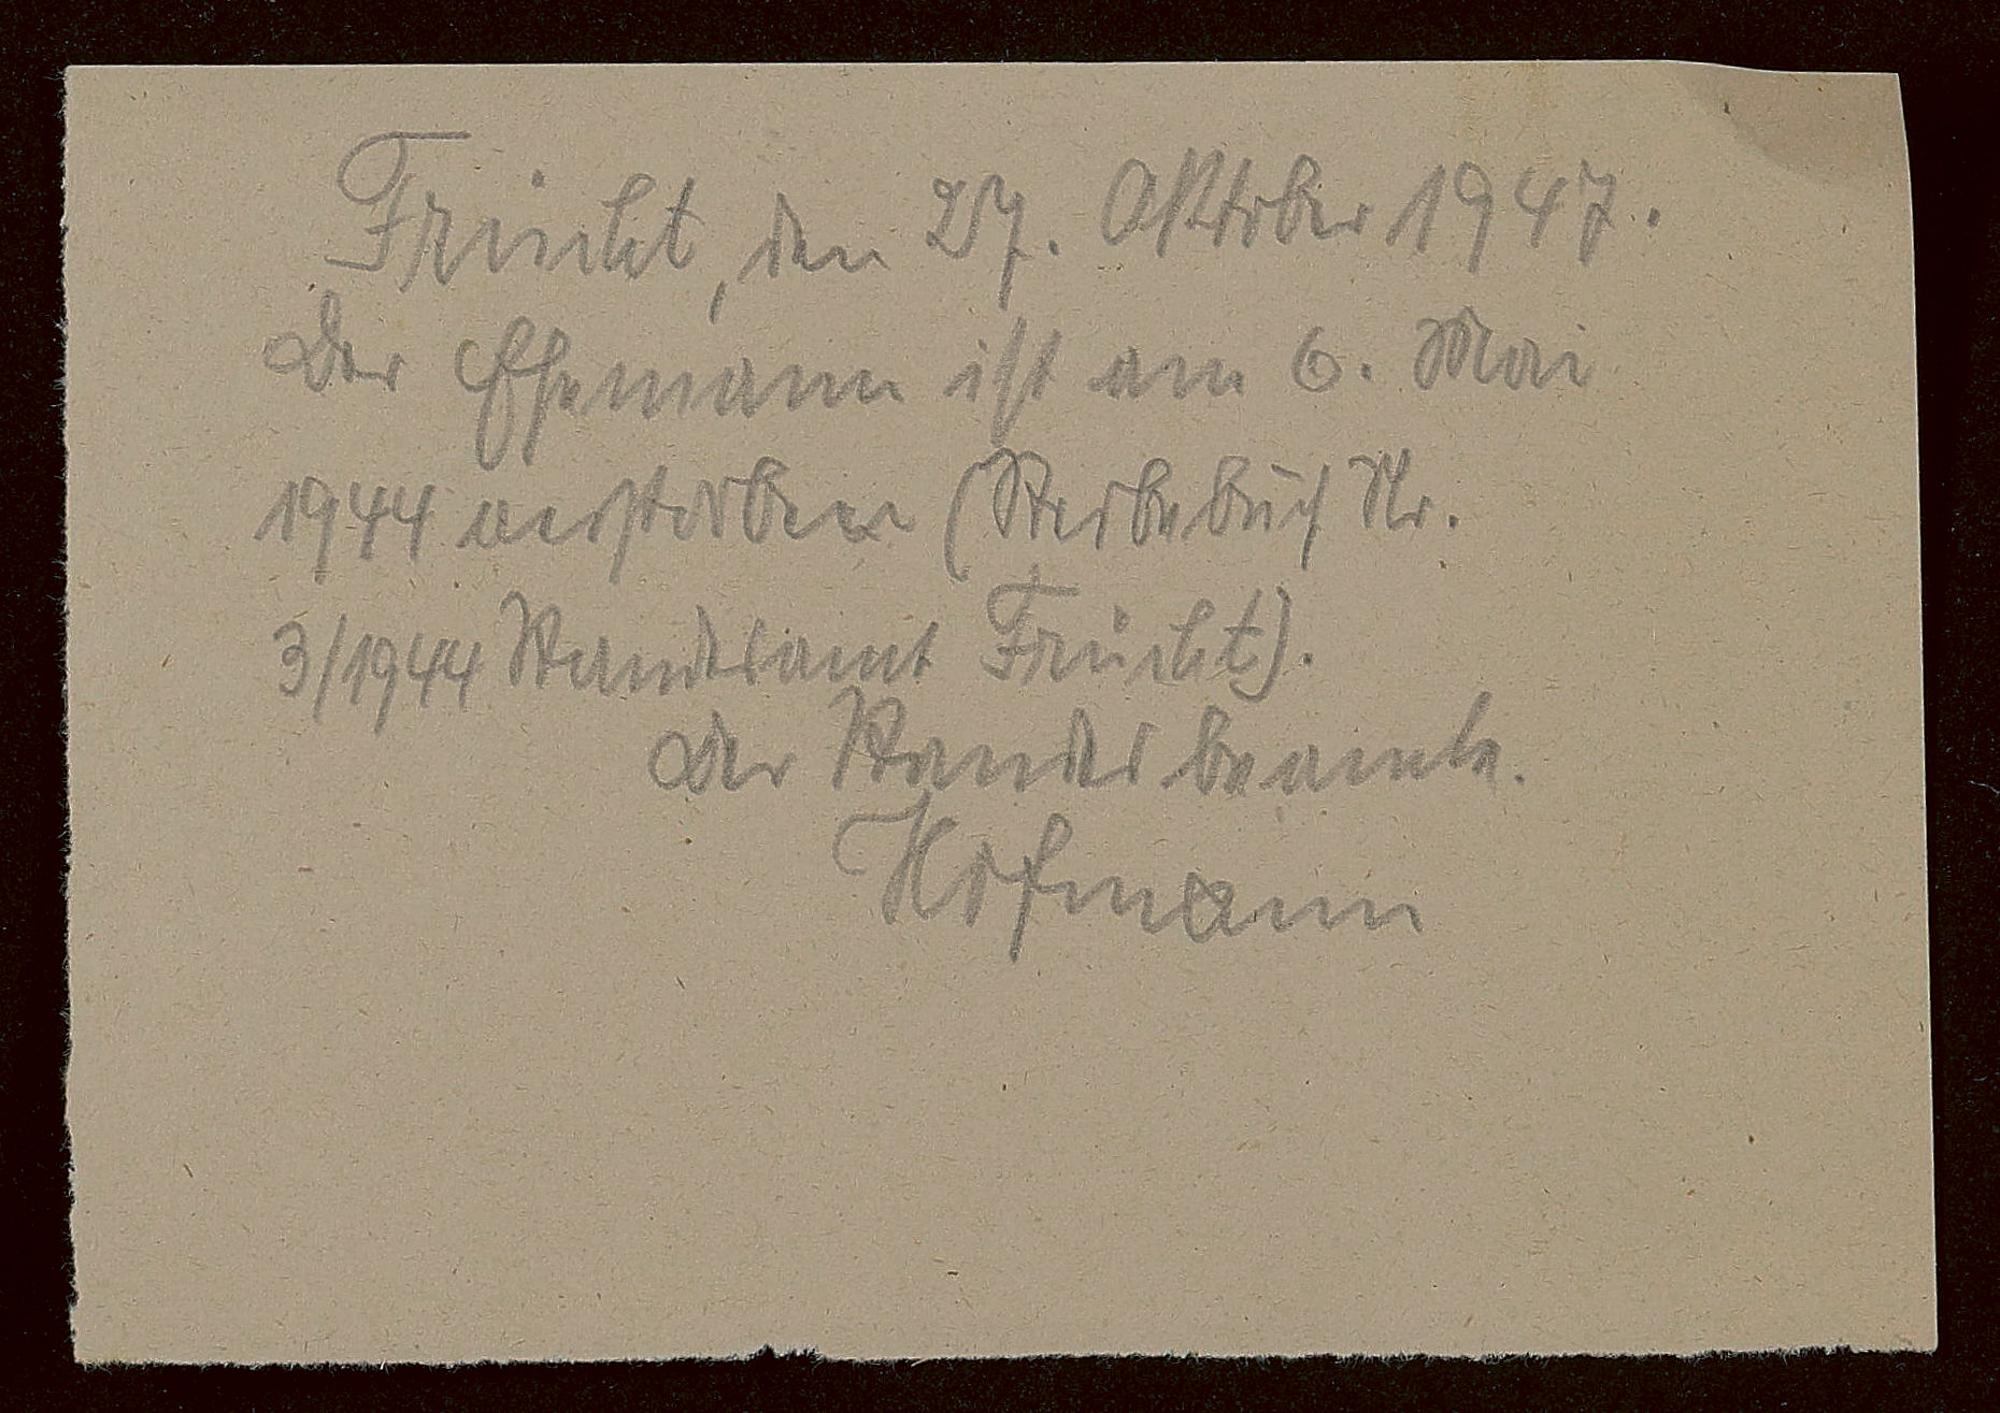 Frücht, den 27. Oktober 1947.
Der Ehemann ist am 6. Mai
1944 verstorben (Sterbebuch Nr.
3/1944 Standesamt Frücht).
Der Standesbeamte.
Hofmann